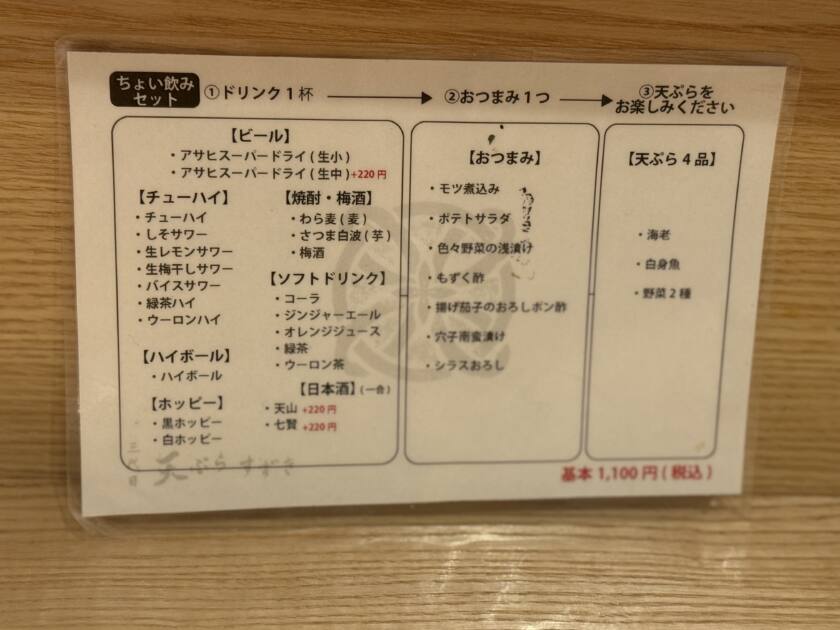 ちょい飲み
セット
①ドリンク1杯
②おつまみ1つ
③天ぷらを
お楽しみください
【ビール】
・アサヒスーパードライ(生小)
・アサヒスーパードライ(生中)+220円
【チューハイ】
・チューハイ
・しそサワー
・生レモンサワー
・生梅干しサワー
・バイスサワー
・緑茶ハイ
・ウーロンハイ
【ハイボール】
・ハイボール
【ホッピー】
・黒ホッピー
・白ホッピー
【焼酎・梅酒】
・わら麦(麦)
・さつま白波(芋)
・梅酒
【ソフトドリンク】
・コーラ
・ジンジャーエール
・オレンジジュース
・緑茶
・ウーロン茶
【日本酒】(一合)
・天山 +220円
・七賢 +220円
【おつまみ】
・モツ煮込み
・ポテトサラダ
・色々野菜の浅漬け
・もずく酢
・揚げ茄子のおろしポン酢
・穴子南蛮漬け
・シラスおろし
【天ぷら4品】
・海老
・白身魚
・野菜2種
三代目
天ぷらすずき
基本1,100円(税込)